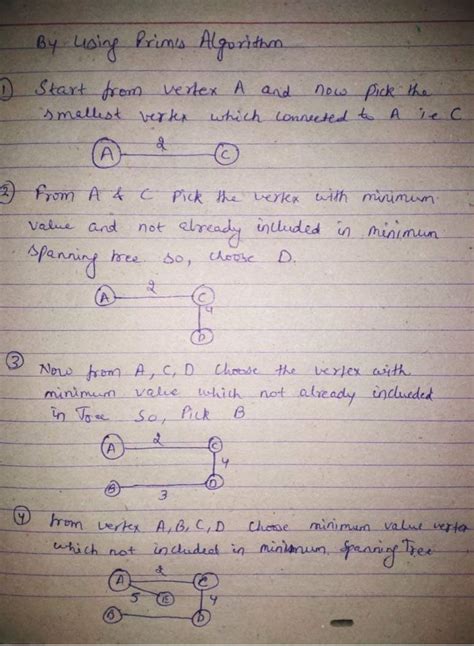 By Using Prim's Algorithm
① Start from vertex A and now pick the
smallest vertex which connected to A i.e C
A 2 C
② From A & C Pick the vertex with minimum
value and not already included in minimum
spanning tree so, choose D.
A 2 C
4
D
③ Now from A, C, D choose the vertex with
minimum value which not already inclueded
in Tree so, Pick B
A 2 C
4
B 3 D
④ from vertex A, B, C, D choose minimum value vertex
which not included in minimum Spanning Tree
A 2 C
5 E 4
B D